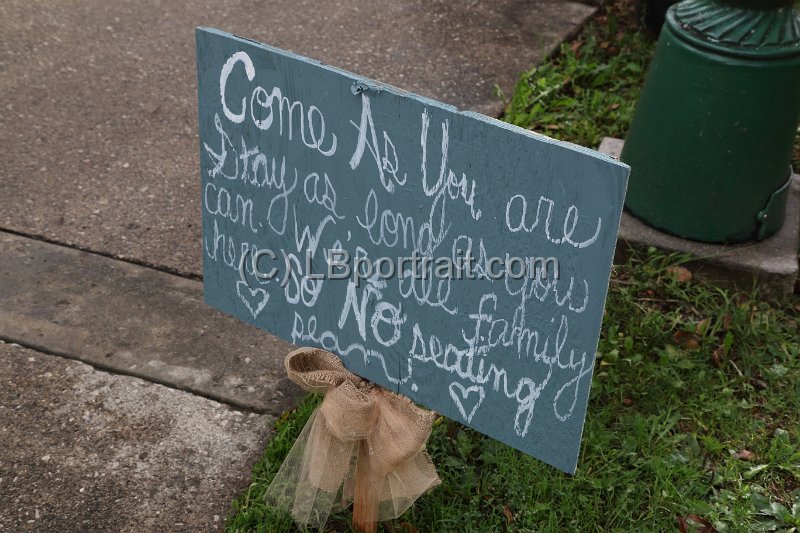 Come As You are
Stay as long as you
can We're all family
here. SO NO seating
plan!
(C) LBportrait.com